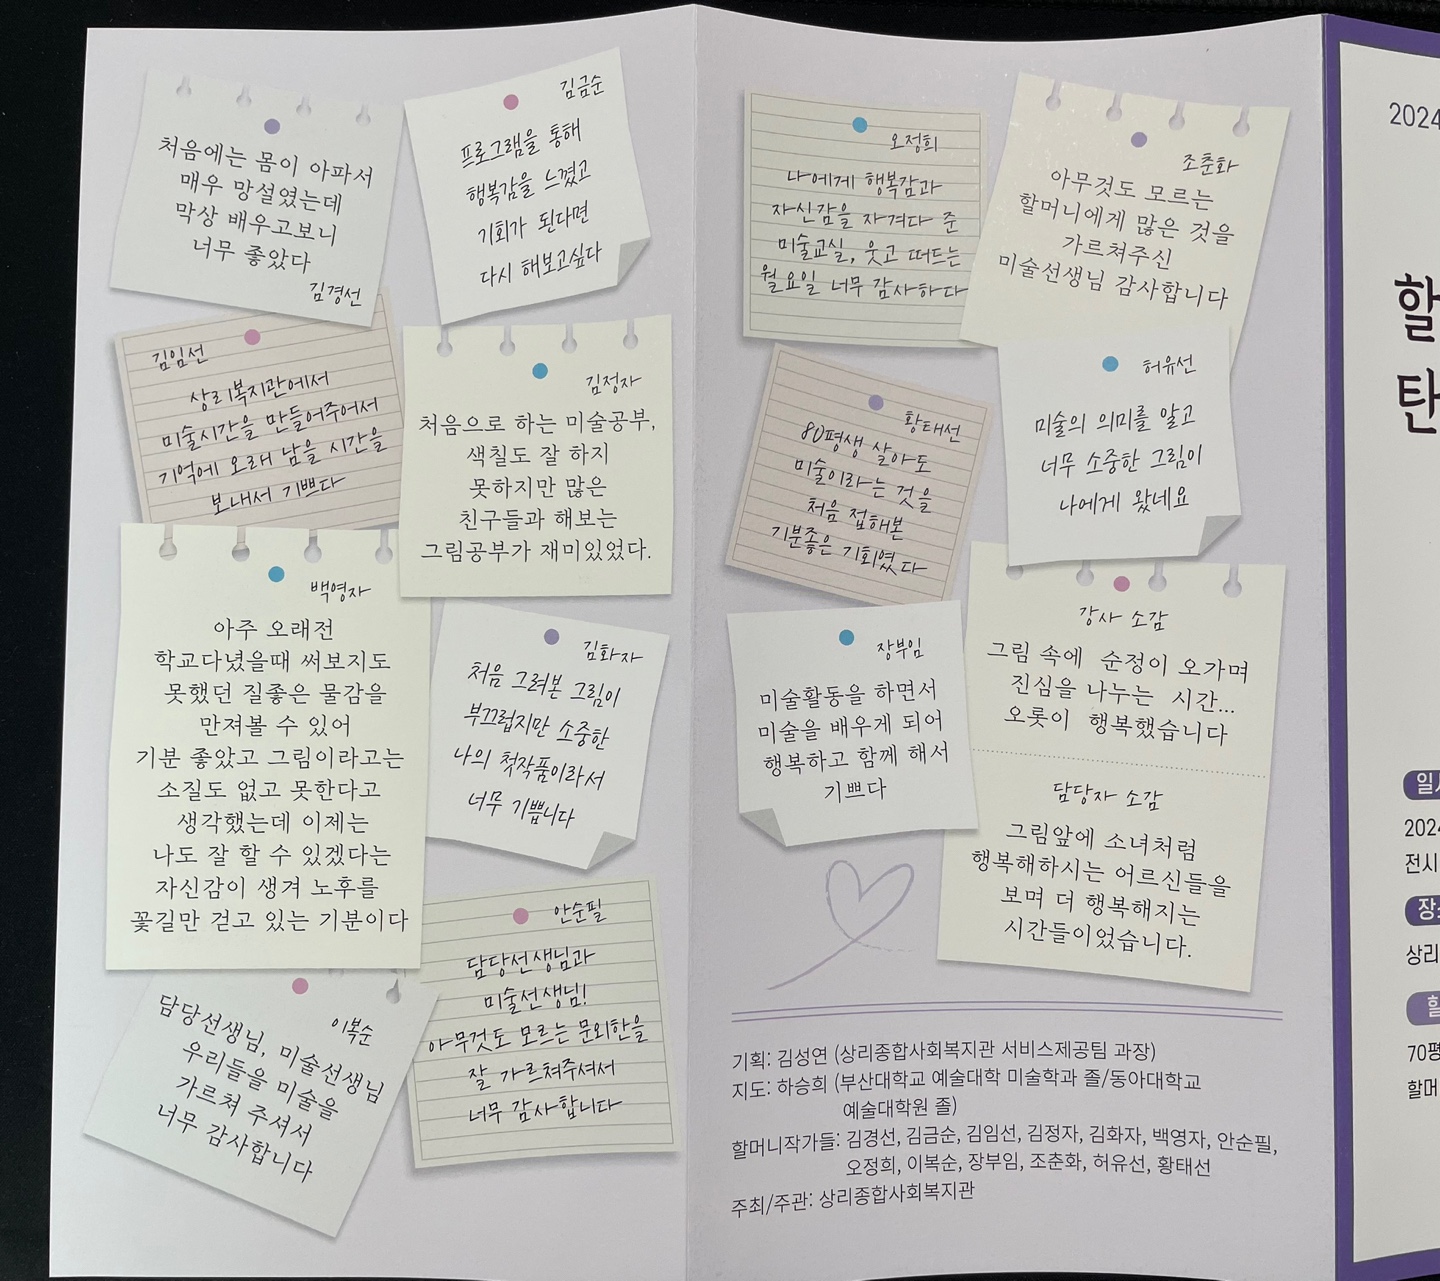 처음에는 몸이 아파서
매우 망설였는데
막상 배우고보니
너무 좋았다
김경선
김금순
프로그램을 통해
행복감을 느꼈고
기회가 된다면
다시 해보고싶다
김임선
상리복지관에서
미술시간을 만들어주어서
기억에 오래 남을 시간을
보내서 기쁘다
김정자
처음으로 하는 미술공부,
색칠도 잘 하지
못하지만 많은
친구들과 해보는
그림공부가 재미있었다.
백영자
아주 오래전
학교다녔을때 써보지도
못했던 질좋은 물감을
만져볼 수 있어
기분 좋았고 그림이라고는
소질도 없고 못한다고
생각했는데 이제는
나도 잘 할 수 있겠다는
자신감이 생겨 노후를
꽃길만 걷고 있는 기분이다
김화자
처음 그려본 그림이
부끄럽지만 소중한
나의 첫작품이라서
너무 기쁩니다
이복순
담당선생님, 미술선생님
우리들을 미술을
가르쳐 주셔서
너무 감사합니다
안순필
담당선생님과
미술선생님!
아무것도 모르는 문외한을
잘 가르쳐주셔서
너무 감사합니다
오정희
나에게 행복감과
자신감을 자겨다 준
미술교실, 웃고 떠드는
월요일 너무 감사하다
조춘화
아무것도 모르는
할머니에게 많은 것을
가르쳐주신
미술선생님 감사합니다
황태선
80평생 살아도
미술이라는 것을
처음 접해본
기분좋은 기회였다
허유선
미술의 의미를 알고
너무 소중한 그림이
나에게 왔네요
장부임
미술활동을 하면서
미술을 배우게 되어
행복하고 함께 해서
기쁘다
강사 소감
그림 속에 순정이 오가며
진심을 나누는 시간...
오롯이 행복했습니다
담당자 소감
그림앞에 소녀처럼
행복해하시는 어르신들을
보며 더 행복해지는
시간들이었습니다.
기획: 김성연 (상리종합사회복지관 서비스제공팀 과장)
지도: 하승희 (부산대학교 예술대학 미술학과 졸/동아대학교
예술대학원 졸)
할머니작가들: 김경선, 김금순, 김임선, 김정자, 김화자, 백영자, 안순필,
오정희, 이복순, 장부임, 조춘화, 허유선, 황태선
주최/주관: 상리종합사회복지관
2024
할
탄
일시
2024
전시
장소
상리
할
70평
할머